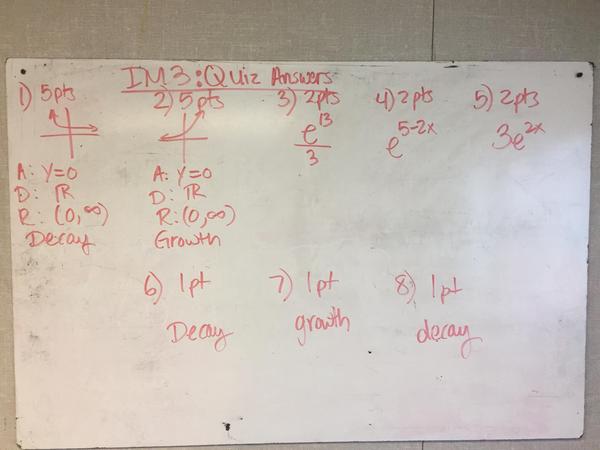 IM3: Quiz Answers
1) 5pts
A: y=0
D: ℝ
R: (0,∞)
Decay
2) 5pts
A: y=0
D: ℝ
R: (0,∞)
Growth
3) 2pts
e^13
3
4) 2pts
e^5-2x
5) 2pts
3e^2x
6) 1pt
Decay
7) 1pt
growth
8) 1pt
decay